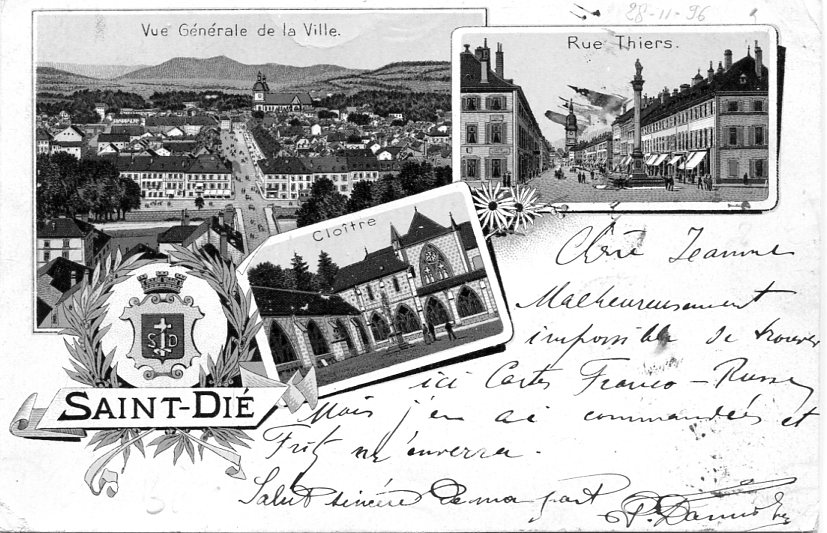 28-11-96
Vue Générale de la Ville.
Rue Thiers.
Cloître
S D
SAINT-DIÉ
Chère Jeanne
Malheureusement
impossible de trouver
ici Cartes Franco-Russes
Mais j'en ai commandées et
Fritz m'enverra.
Salut sincère de ma part